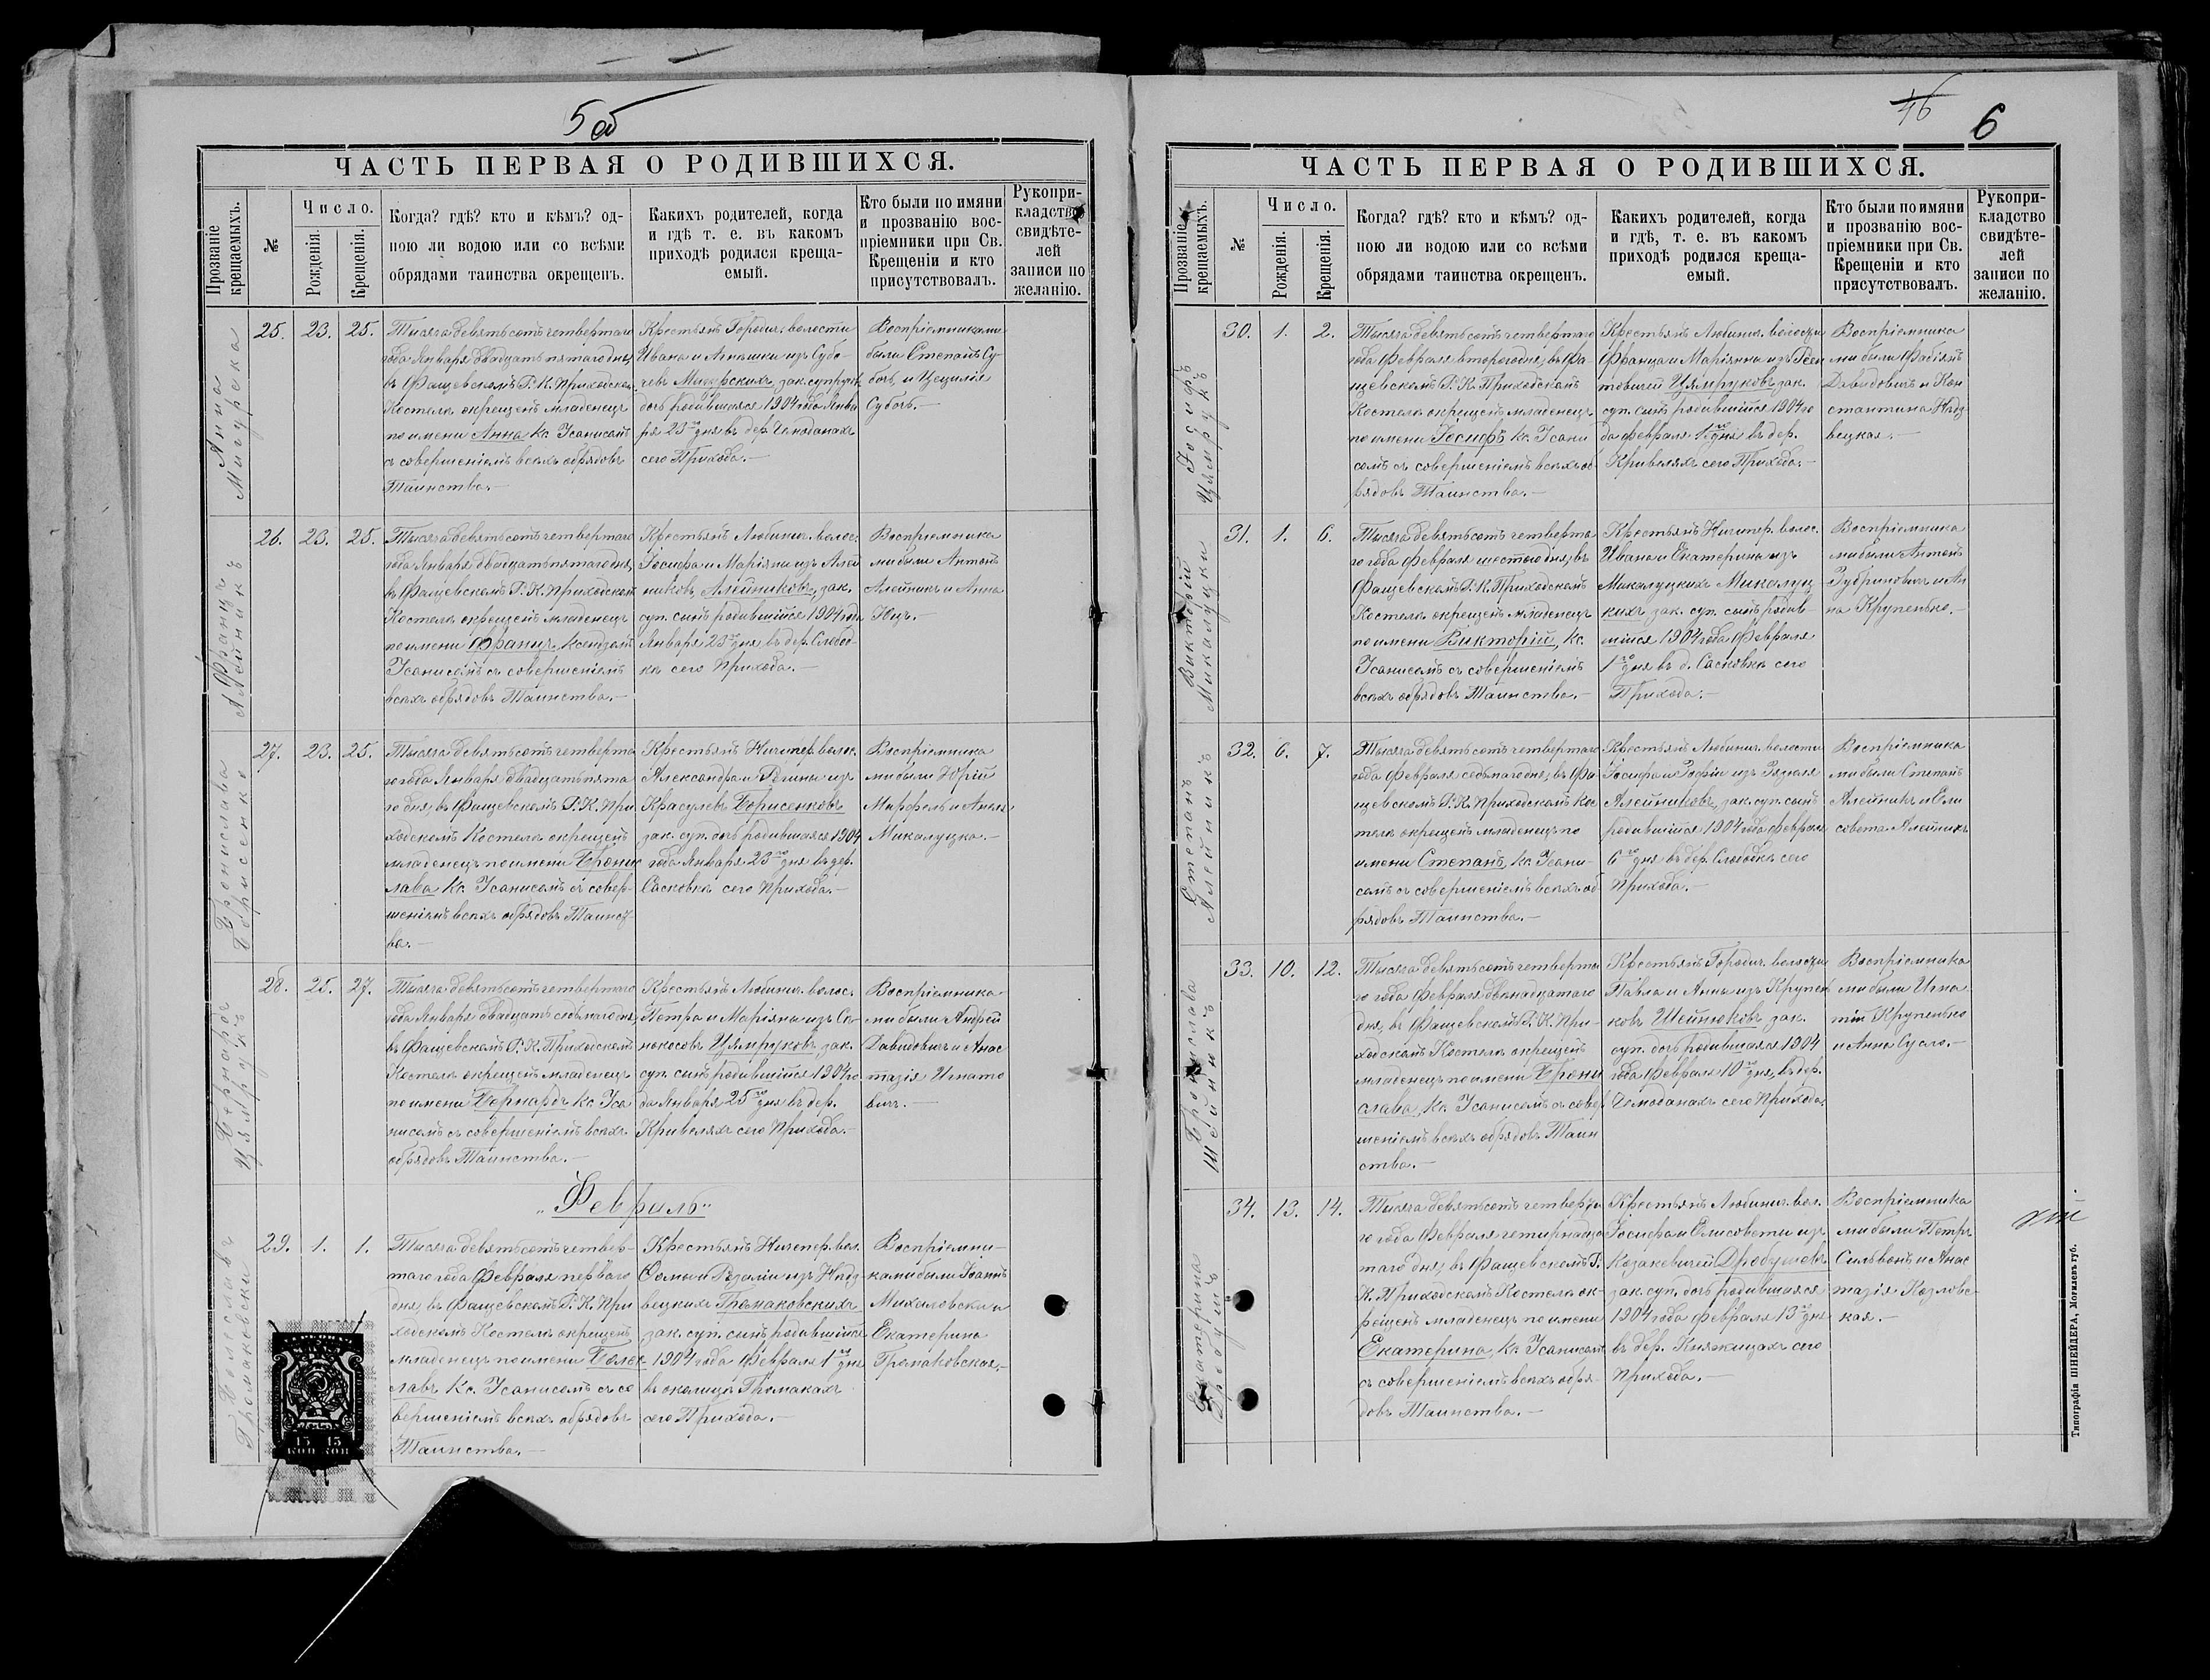 5 об
ЧАСТЬ ПЕРВАЯ О РОДИВШИХСЯ.
Прозваніе крещаемыхъ.
№
Число.
Рожденія.
Крещенія.
Когда? гдѣ? кто и кѣмъ? од-
ною ли водою или со всѣми
обрядами таинства окрещенъ.
Какихъ родителей, когда
и гдѣ т. е. въ какомъ
приходѣ родился креща-
емый.
Кто были по имяни
и прозванію вос-
пріемники при Св.
Крещеніи и кто
присутствовалъ.
Рукопри-
кладство
свидѣте-
лей
записи по
желанію.
Анна
Мигурска
25. 23. 25.
Тысяча девятьсотъ четвертаго
года Января двадцать пятаго дня,
въ Фащевскомъ Р. К. Приходскомъ
Костелѣ окрещенъ младенецъ
по имени Анна Кс. Усанисомъ
съ совершеніемъ всѣхъ обрядовъ
Таинства.—
Крестьянъ Городищ. волости
Ивана и Агнешки изъ Субо-
чевъ Мигурскихъ, зак. супруговъ
дочь родившаяся 1904 года Янва
ря 23го дня въ дер. Чемоданахъ
сего Прихода.—
Воспріемниками
были Степанъ Су-
бочъ и Цецилія
Субочъ.—
Францъ
Алейникъ
26. 23. 25.
Тысяча девятьсотъ четвертаго
года Января двадцать пятаго дня,
въ Фащевскомъ Р. К. Приходскомъ
Костелѣ окрещенъ младенецъ
по имени Францъ, Ксендзомъ
Усанисомъ съ совершеніемъ
всѣхъ обрядовъ Таинства.—
Крестьянъ Любинич. волос.
Іосифа и Маріяны изъ Алей
никовъ, Алейниковъ, зак.
суп. сынъ родившійся 1904 года
Января 23го дня въ дер. Слобод-
кѣ сего Прихода.—
Воспріемника
ми были Антонъ
Алейникъ и Анна
Юцъ.—
Бронислава
Борисенко
27. 23. 25.
Тысяча девятьсотъ четверта
го года Января двадцать пята
го дня, въ Фащевскомъ Р. К. При
ходскомъ Костелѣ окрещенъ
младенецъ по имени Брони
слава Кс. Усанисомъ съ совер-
шеніемъ всѣхъ обрядовъ Таинст
ва.—
Крестьянъ Ничипер. волос.
Александра и Регины изъ
Красулевъ Борисенковъ
зак. суп. дочь родившаяся 1904
года Января 23го дня въ дер.
Сасковкѣ сего Прихода.—
Воспріемника
ми были Юрій
Марфель и Анеля
Микалуцка.—
Бернардъ
Цямрукъ
28. 25. 27.
Тысяча девятьсотъ четвертаго
года Января двадцать седьмаго дня,
въ Фащевскомъ Р. К. Приходскомъ
Костелѣ окрещенъ младенецъ
по имени Бернардъ Кс. Уса
нисомъ съ совершеніемъ всѣхъ
обрядовъ Таинства.—
Крестьянъ Любинич. волос.
Петра и Маріяны изъ Се-
нокосовъ Цямруковъ, зак.
суп. сынъ родившійся 1904 го
да Января 25го дня въ дер.
Кривеляхъ сего Прихода.—
Воспріемника
ми были Андрей
Давидовичъ и Анас
тазія Игнато
вичъ.—
„Февраль"
Болеславъ
Громаковски
29. 1. 1.
Тысяча девятьсотъ четвер-
таго года Февраля перваго
дня, въ Фащевскомъ Р. К. При
ходскомъ Костелѣ окрещенъ
младенецъ по имени Болес
лавъ Кс. Усанисомъ съ со
вершеніемъ всѣхъ обрядовъ
Таинства.—
Крестьянъ Ничепер. вол.
Ѳомы и Розаліи изъ Нѣдз-
вецкихъ Громаковскихъ
зак. суп. сынъ родившійся
1904 года Февраля 1го дня
въ околицѣ Громакахъ
сего Прихода.—
Воспріемни-
ками были Іоаннъ
Михаловски и
Екатерина
Громаковская.—
15 15
КОП КОП
46
6
ЧАСТЬ ПЕРВАЯ О РОДИВШИХСЯ.
Прозваніе крещаемыхъ.
№
Число.
Рожденія.
Крещенія.
Когда? гдѣ? кто и кѣмъ? од-
ною ли водою или со всѣми
обрядами таинства окрещенъ.
Какихъ родителей, когда
и гдѣ, т. е. въ какомъ
приходѣ родился креща-
емый.
Кто были по имяни
и прозванію вос-
пріемники при Св.
Крещеніи и кто
присутствовалъ.
Рукопри-
кладство
свидѣте-
лей
записи по
желанію.
Іосифъ
Цямрукъ
30. 1. 2.
Тысяча девятьсотъ четвертаго
года Февраля второго дня, въ Фа-
щевскомъ Р. К. Приходскомъ
Костелѣ окрещенъ младенецъ
по имени Іосифъ Кс. Усани
сомъ съ совершеніемъ всѣхъ об
рядовъ Таинства.—
Крестьянъ Любинич. волости
Франца и Маріянны изъ
Цямруковъ зак.
суп. сынъ родившійся 1904 го
да Февраля 1го дня въ дер.
Кривеляхъ сего Прихода.—
Воспріемника
ми были Фабіянъ
Давидовичъ и Кон
стантина Нѣдз
вецкая.—
Викторій
Микалуцки
31. 1. 6.
Тысяча девятьсотъ четверта
го года Февраля шестого дня, въ
Фащевскомъ Р. К. Приходскомъ
Костелѣ окрещенъ младенецъ
по имени Викторій, Кс.
Усанисомъ съ совершеніемъ
всѣхъ обрядовъ Таинства.—
Крестьянъ Ничипер. волос.
Ивана и Екатерины изъ
Микалуцкихъ Микалуц
кихъ зак. суп. сынъ родив-
шійся 1904 года Февраля
1го дня въ д. Сасковкѣ сего
Прихода.—
Воспріемника
ми были Антонъ
Губриновичъ и Ан
на Крупенько.—
Степанъ
Алейникъ
32. 6. 7.
Тысяча девятьсотъ четвертаго
года Февраля седьмаго дня, въ Фа
щевскомъ Р. К. Приходскомъ Кос
телѣ окрещенъ младенецъ по
имени Степанъ, Кс. Усани-
сомъ съ совершеніемъ всѣхъ об
рядовъ Таинства.—
Крестьянъ Любинич. волости
Іосифа и Зофіи изъ
Алейниковъ, зак. суп. сынъ
родившійся 1904 года Февраля
6го дня въ дер. Слободкѣ сего
Прихода.—
Воспріемника
ми были Степанъ
Алейникъ и Ели
совета Алейникъ
Бронислава
Шейнюкъ
33. 10. 12.
Тысяча девятьсотъ четверта
го года Февраля двѣнадцатаго
дня, въ Фащевскомъ Р. К. При-
ходскомъ Костелѣ окрещенъ
младенецъ по имени Брони
слава, Кс. Усанисомъ съ совер
шеніемъ всѣхъ обрядовъ Таин
ства.—
Крестьянъ Городищ. волости
Павла и Анны изъ Крупен
ковъ Шейнюковъ зак.
суп. дочь родившаяся 1904
года Февраля 10го дня, въ дер.
Чемоданахъ сего Прихода.
Воспріемника
ми были Игна
тій Крупенько
и Анна Сусло.—
Екатерина
Дробушъ
34. 13. 14.
Тысяча девятьсотъ четверта
го года Февраля четырнадца
таго дня, въ Фащевскомъ Р.
К. Приходскомъ Костелѣ ок-
рещенъ младенецъ по имени
Екатерина, Кс. Усанисомъ
съ совершеніемъ всѣхъ обря-
довъ Таинства.—
Крестьянъ Любинич. вол.
Іосифа и Елисоветы изъ
Козакевичей Дробушевъ
зак. суп. дочь родившаяся
1904 года Февраля 13го дня
въ дер. Княжицахъ сего
Прихода.—
Воспріемника
ми были Петръ
Сильвонъ и Анас
тазія Козловс-
кая.—
Типографія ШНЕЙДЕРА, Могилевъ губ.